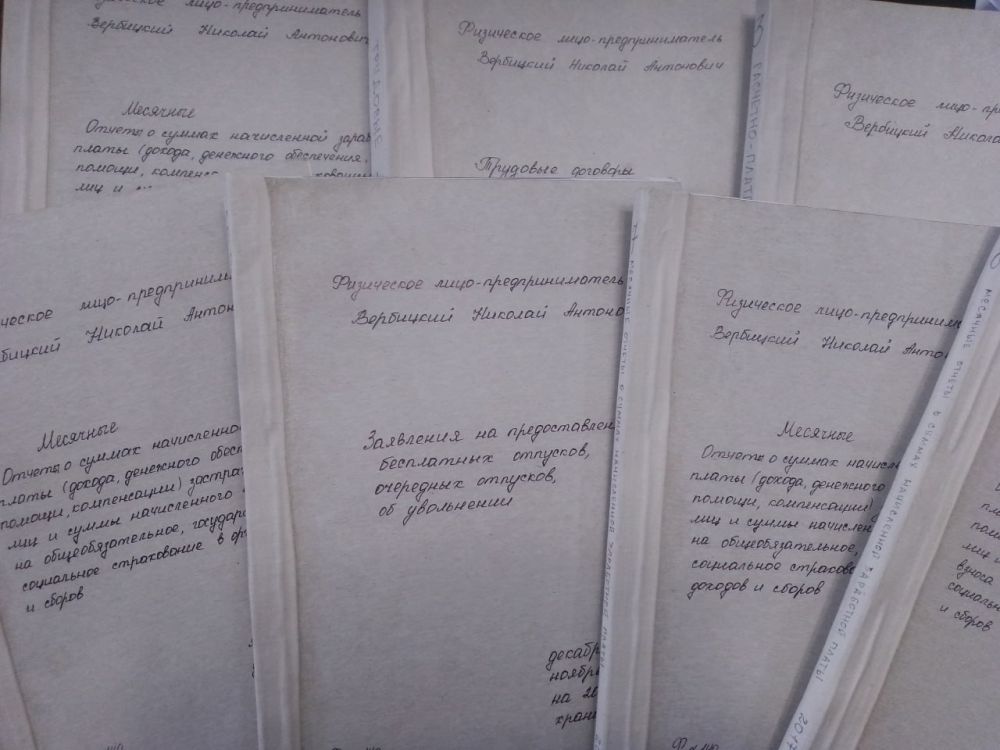 лицо-предприниматель
Вербицкий Николай Антонович
Месячные
Отчеты о суммах начисленной
платы (дохода, денежного обеспечения,
помощи,
лиц и
Физическое лицо-предприниматель
Вербицкий Николай Антонович
Трудовые договоры
РАСЧЕТНО-ПЛАТ
Физическое лицо-
Вербицкий Никола
ческое лицо-предприним
бицкий Николай Антон
Месячные
Отчеты о суммах начисленно
платы (дохода, денежного обесп
помощи, компенсации) застра
лиц и суммы начисленного
на общеобязательное, государ
социальное страхование в ор
и сборов
Физическое лицо-предприниматель
Вербицкий Николай Антоно
Заявления на предоставлен
бесплатных отпусков,
очередных отпусков,
об увольнении
декабр
ноябр
на 20
хран
МЕСЯЧНЫЕ ОТЧЕТЫ О СУММАХ НАЧИСЛЕННОЙ ЗАРАБОТНОЙ ПЛАТЫ
Физическое лицо-предприним
Вербицкий Николай Антон
Месячные
Отчеты о суммах начисл
платы (дохода, денежного
помощи, компенсации)
лиц и суммы начислен
на общеобязательное,
социальное страхова
доходов и сборов
МЕСЯЧНЫЕ ОТЧЕТЫ О СУММАХ НАЧИСЛЕННОЙ ЗАРАБОТНОЙ ПЛАТЫ 201
пла
помо
лиц и
взноса
социальн
и сборов